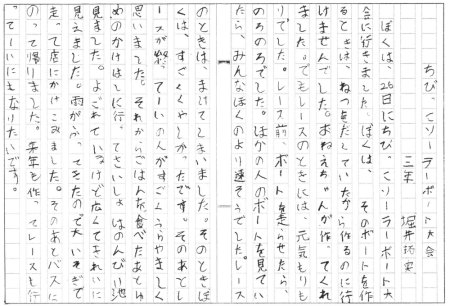 ちびっこソーラーボート大会
三年 堀井
ぼくは、26日にちびっこソーラーボート大
会に行きました。ぼくは、そのボートを作
るときは、ねつをだしていたから作るのに行
けませんでした。おねえちゃんが作ってくれ
ました。でもレースのときには、元気もりも
りでした。レース前、ボートを走らせたら、
のろのろでした。ほかの人のボートを見てい
たら、みんなぼくのより速そうでした。レース
のときは、まけてしまいました。そのときぼ
くは、すごくくやしかったです。そのあとレ
ースが終って、一いの人がすごくうらやましく
思いました。それからごはんを食べたあとゆ
めのかけはしに行って、さいしょはのんびり池を
見ました。よごれているけど広くてきれいに
見えました。雨がふってきたので大いそぎで
走って店にかけこみました。そのあとバスに
のって帰りました。来年も作ってレースも行
って一いになりたいです。